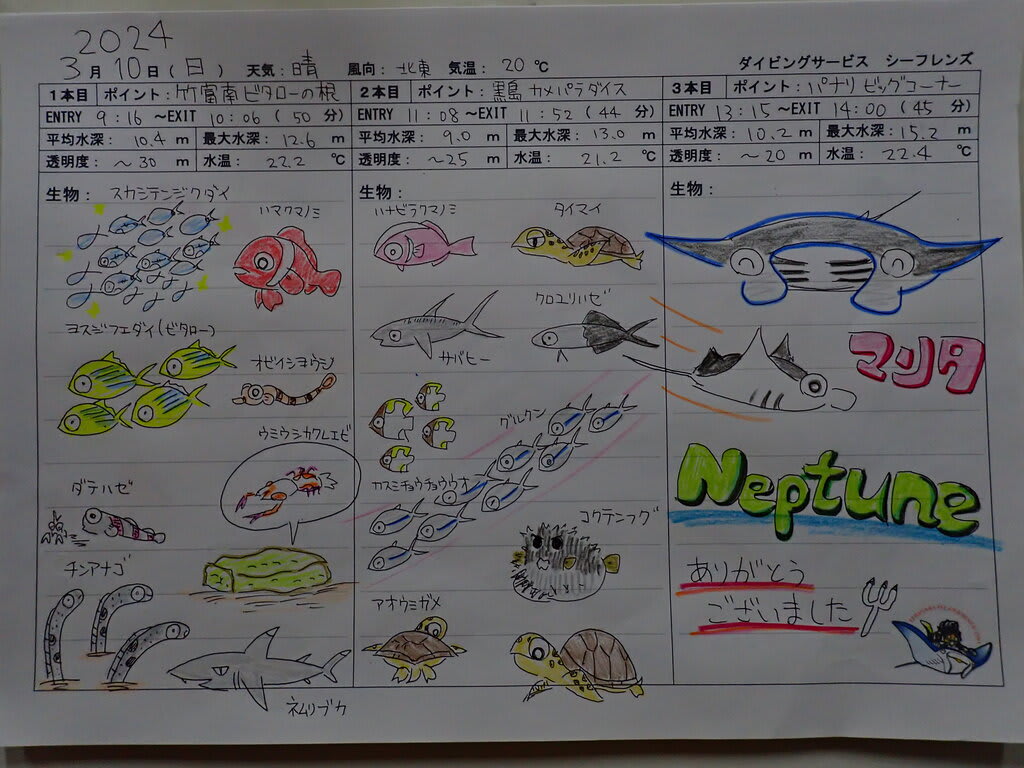 2024
3月10日(日) 天気:晴 風向:北東 気温:20℃ ダイビングサービス シーフレンズ
1本目 ポイント:竹富南ビタローの根
ENTRY 9:16 ~EXIT 10:06 (50 分)
平均水深: 10.4 m 最大水深: 12.6 m
透明度: ~30 m 水温: 22.2 ℃
生物: スカシテンジクダイ
ハマクマノミ
ヨスジフエダイ(ビタロー)
オビイシヨウジ
ウミウシカクレエビ
ダテハゼ
チンアナゴ
ネムリブカ
2本目 ポイント:黒島 カメパラダイス
ENTRY 11:08 ~EXIT 11:52 (44 分)
平均水深: 9.0 m 最大水深: 13.0 m
透明度: ~25 m 水温: 21.2 ℃
生物:
ハナビラクマノミ
タイマイ
クロユリハゼ
サバヒー
グルクン
カスミチョウチョウウオ
コクテンフグ
アオウミガメ
3本目 ポイント:パナリ ビッグコーナー
ENTRY 13:15 ~EXIT 14:00 (45 分)
平均水深: 10.2 m 最大水深: 15.2 m
透明度: ~20 m 水温: 22.4 ℃
生物:
マンタ
Neptune
ありがとう
ございました